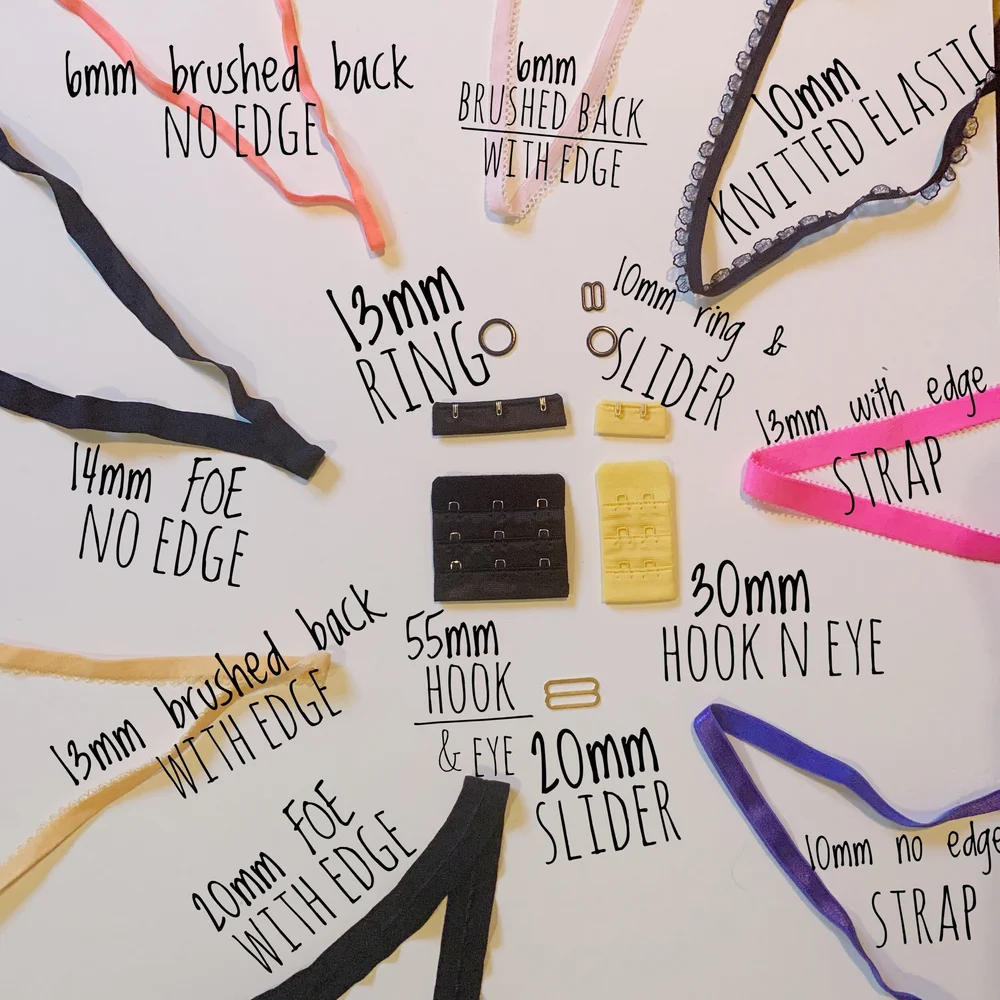 6mm brushed back
NO EDGE
6mm
BRUSHED BACK
WITH EDGE
10mm
KNITTED ELASTIC
13mm
RING
10mm ring &
SLIDER
13mm with edge
STRAP
14mm FOE
NO EDGE
30mm
HOOK N EYE
55mm
HOOK
& EYE
13mm brushed back
WITH EDGE
20mm
SLIDER
20mm FOE
WITH EDGE
10mm no edge
STRAP